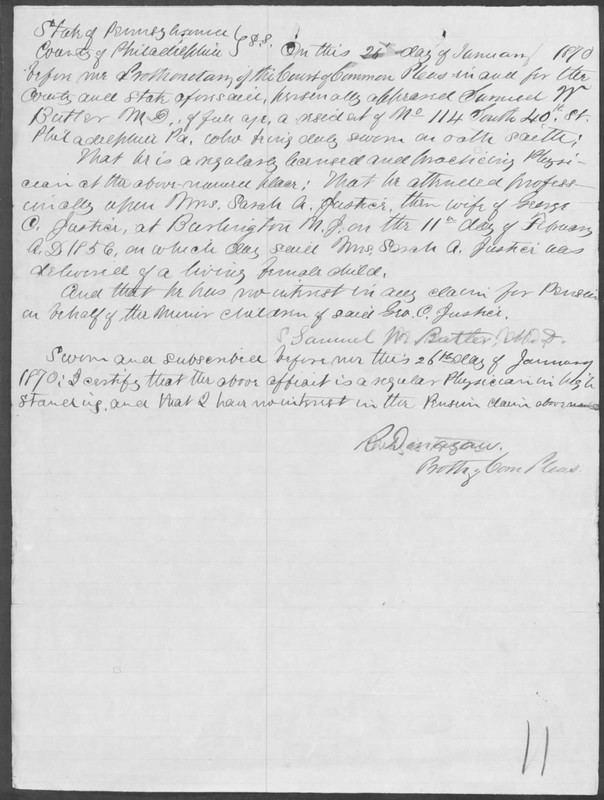 State of Pennsylvania } s.s.
County of Philadelphia } On this 26th day of January 1870
before me Prothonotary of the Court of Common Pleas in and for the
County and State aforesaid, personally appeared Samuel W
Butler M.D., of full age, a resident of No 114 South 40th St.
Philadelphia Pa. who being duly sworn on oath saith;
That he is a regularly licensed and practicing Physi-
cian at the above-named place; That he attended profess-
ionally upon Mrs. Sarah A. Justice, then wife of George
C. Justice, at Burlington N.J. on the 11th day of February
A.D 1856, on which day said Mrs. Sarah A. Justice was
delivered of a living female child.
And that he has no interest in any claim for Pension
on behalf of the Minor children of said Geo. C. Justice.
S. Samuel W. Butler, M.D.
Sworn and subscribed before me this 26th day of January
1870; I certify that the above affiant is a regular Physician in high
standing, and that I have no interest in the Pension claim above-named
Prothy Com Pleas.
11